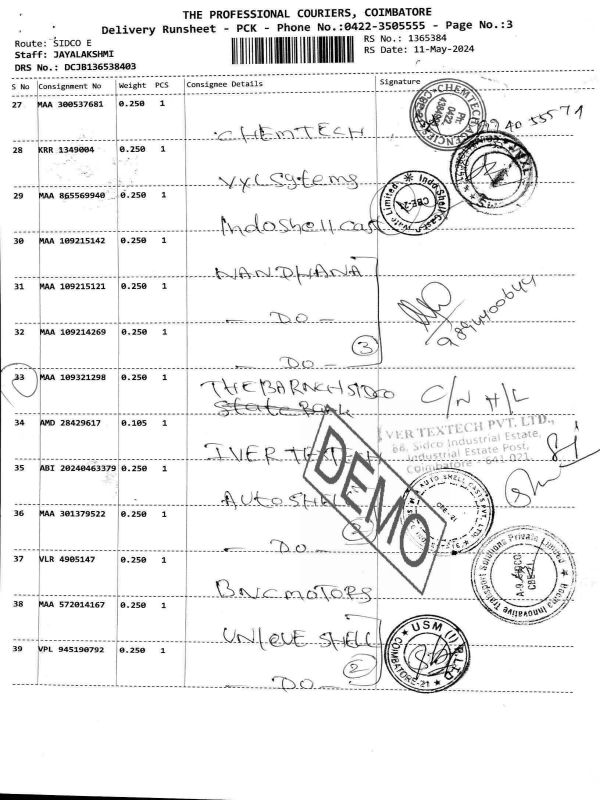 THE PROFESSIONAL COURIERS, COIMBATORE
Delivery Runsheet - PCK - Phone No.:0422-3505555 - Page No.:3
Route: SIDCO E
RS No.: 1365384
Staff: JAYALAKSHMI
RS Date: 11-May-2024
DRS No.: DCJB136538403
S No Consignment No Weight PCS Consignee Details Signature
27 MAA 300537681 0.250 1
CHEMTECH
CHEMTECH AGENCIES
PH: 0422
28 KRR 1349004 0.250 1
VXL Systems
29 MAA 865569940 0.250 1
Indoshell cast
Indo Shell Cast Private Limited
CBE-21
30 MAA 109215142 0.250 1
NANDHANA
31 MAA 109215121 0.250 1
- DO -
9894400644
32 MAA 109214269 0.250 1
- DO - 3
33 MAA 109321298 0.250 1
THE BARNCH SIDCO
State Bank
C/N H/L
34 AMD 28429617 0.105 1
IVER TEXTECH
IVER TEXTECH PVT. LTD.,
Sidco Industrial Estate,
Industrial Estate Post,
Coimbatore - 641 021
35 ABI 20240463379 0.250 1
AUTO SHELL
AUTO SHELL CASTS PVT. LTD.
CBE-21
36 MAA 301379522 0.250 1
- DO - 2
DEMO
37 VLR 4905147 0.250 1
BNC MOTORS
Innovative Transport Solutions Private Limited
A-9, SIDCO,
CBE-21
38 MAA 572014167 0.250 1
UNIQUE SHELL
USM (I) P. LTD
COIMBATORE-21
39 VPL 945190792 0.250 1
- DO - 2